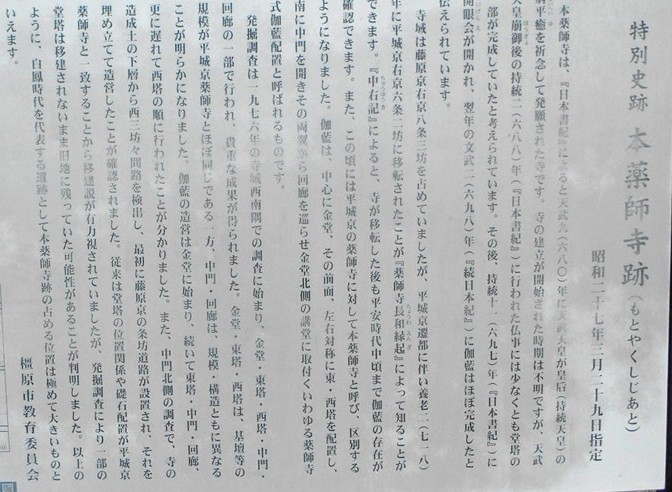 特別史跡 本薬師寺跡（もとやくしじあと）
昭和二十七年三月二十九日指定
本薬師寺は、『日本書紀』によると天武九（六八〇）年に天武天皇が皇后（持統天皇）の
病平癒を祈念して発願された寺です。寺の建立が開始された時期は不明ですが、天武
天皇崩御後の持統二（六八八）年（『日本書紀』）に行われた仏事には少なくとも堂塔の
一部が完成していたと考えられています。その後、持統十一（六九七）年（『日本書紀』）に
開眼会が開かれ、翌年の文武二（六九八）年（『続日本紀』）に伽藍はほぼ完成したと
伝えられています。
寺域は藤原京右京八条三坊を占めていましたが、平城京遷都に伴い養老二（七一八）
年に平城京右京六条二坊に移転されたことが『薬師寺長和縁起』によって知ることが
できます。『中右記』によると、寺が移転した後も平安時代中頃まで伽藍の存在が
確認できます。また、この頃には平城京の薬師寺に対して本薬師寺と呼び、区別する
ようになりました。伽藍は、中心に金堂、その前面、左右対称に東・西塔を配置し、
南に中門を開きその両翼から回廊を巡らせ金堂北側の講堂に取付くいわゆる薬師寺
式伽藍配置と呼ばれるものです。
発掘調査は一九七六年の寺域西南隅での調査に始まり、金堂・東塔・西塔・中門・
回廊の一部で行われ、貴重な成果が得られました。金堂・東塔・西塔は、基壇等の
規模が平城京薬師寺とほぼ同じである一方、中門・回廊は、規模・構造ともに異なる
ことが明らかになりました。伽藍の造営は金堂に始まり、続いて東塔・中門・回廊、
更に遅れて西塔の順に行われたことが分かりました。また、中門北側の調査で、寺の
造成土の下層から西三坊々間路を検出し、最初に藤原京の条坊道路が設置され、それを
埋め立てて造営したことが確認されました。従来は堂塔の位置関係や礎石配置が平城京
薬師寺と一致することから移建説が有力視されていましたが、発掘調査により一部の
堂塔は移建されないまま旧地に残っていた可能性があることが判明しました。以上の
ように、白鳳時代を代表する遺跡として本薬師寺跡の占める位置は極めて大きいものと
いえます。
橿原市教育委員会